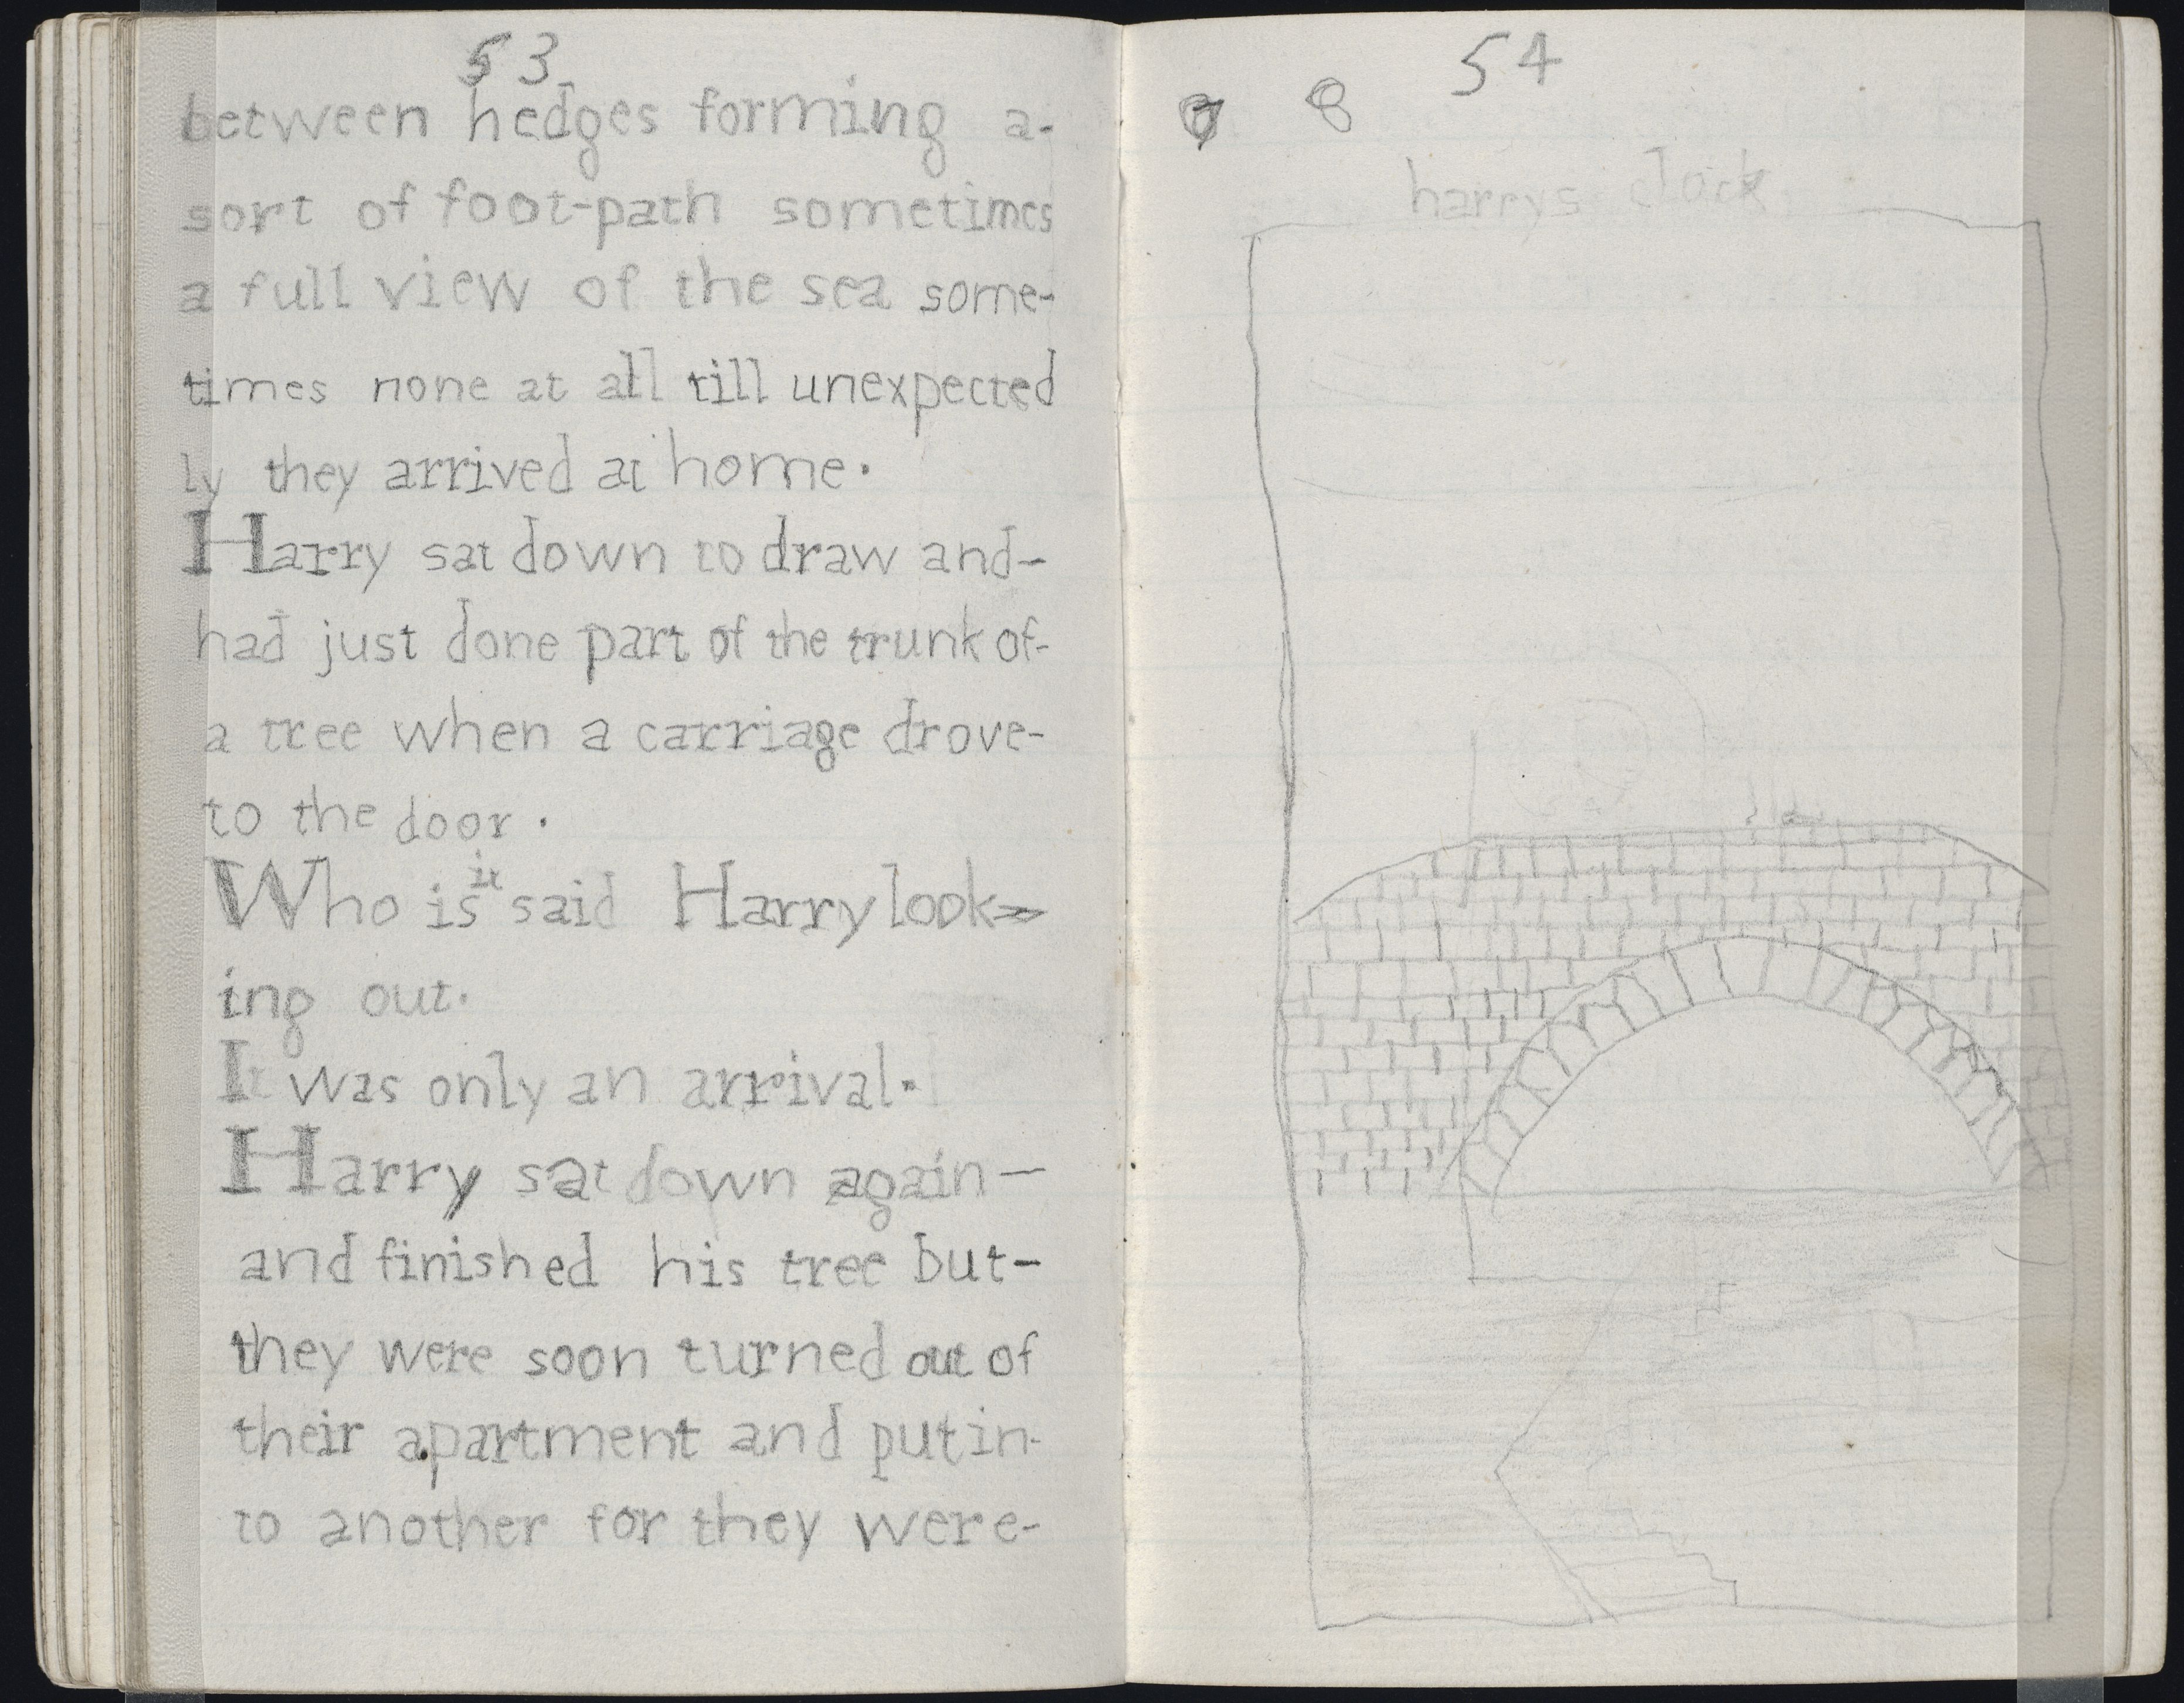 53
between hedges forming a-
sort of foot-path sometimes
a full view of the sea some-
times none at all till unexpected
ly they arrived at home.
Harry sat down to draw and-
had just done part of the trunk of-
a tree when a carriage drove-
to the door.
Who is it said Harry look-
ing out.
It was only an arrival.
Harry sat down again-
and finished his tree but-
they were soon turned out of
their apartment and put in-
to another for they were-
54
8
harrys Jock